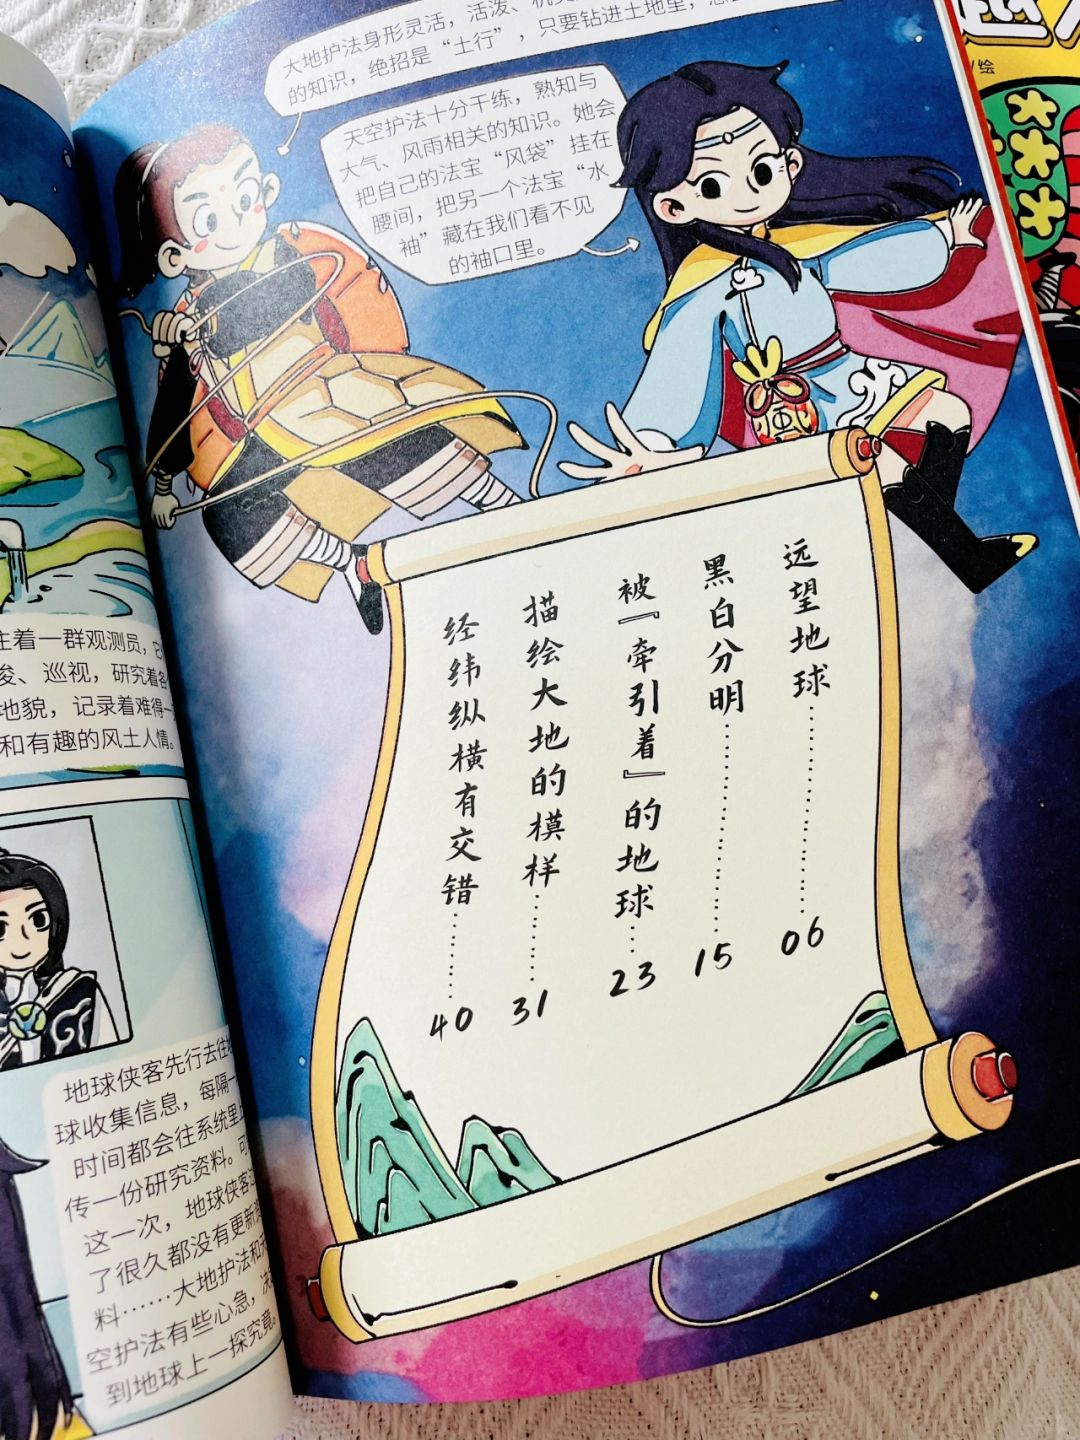 大地护法身形灵活，活泼、
的知识，绝招是“土行”，只要钻进土地里，
天空护法十分干练，熟知与
大气、风雨相关的知识。她会
把自己的法宝“风袋”挂在
腰间，把另一个法宝“水
袖”藏在我们看不见
的袖口里。
远望地球……06
黑白分明……15
被『牵引着』的地球……23
描绘大地的模样……31
经纬纵横有交错……40
住着一群观测员，
巡视，研究着各
地貌，记录着难得一
和有趣的风土人情。
地球侠客先行去往地
球收集信息，每隔一
时间都会往系统里上
传一份研究资料。可
这一次，地球侠客
了很久都没有更新资
料……大地护法和天
空护法有些心急，决
到地球上一探究竟。
绘